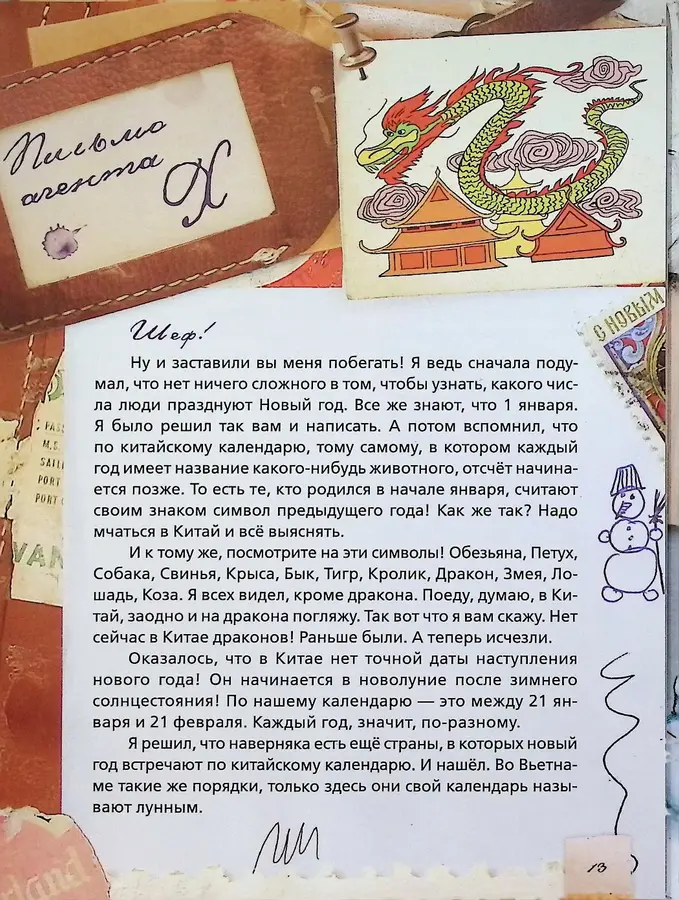 Письмо
агента
X
С НОВЫМ
Шеф!
Ну и заставили вы меня побегать! Я ведь сначала поду-
мал, что нет ничего сложного в том, чтобы узнать, какого чис-
ла люди празднуют Новый год. Все же знают, что 1 января.
Я было решил так вам и написать. А потом вспомнил, что
по китайскому календарю, тому самому, в котором каждый
год имеет название какого-нибудь животного, отсчёт начина-
ется позже. То есть те, кто родился в начале января, считают
своим знаком символ предыдущего года! Как же так? Надо
мчаться в Китай и всё выяснять.
И к тому же, посмотрите на эти символы! Обезьяна, Петух,
Собака, Свинья, Крыса, Бык, Тигр, Кролик, Дракон, Змея, Ло-
шадь, Коза. Я всех видел, кроме дракона. Поеду, думаю, в Ки-
тай, заодно и на дракона погляжу. Так вот что я вам скажу. Нет
сейчас в Китае драконов! Раньше были. А теперь исчезли.
Оказалось, что в Китае нет точной даты наступления
нового года! Он начинается в новолуние после зимнего
солнцестояния! По нашему календарю — это между 21 ян-
варя и 21 февраля. Каждый год, значит, по-разному.
Я решил, что наверняка есть ещё страны, в которых новый
год встречают по китайскому календарю. И нашёл. Во Вьетна-
ме такие же порядки, только здесь они свой календарь назы-
вают лунным.
PAS
M.S.
SAIL
PORT
PORT
VAN
land
13